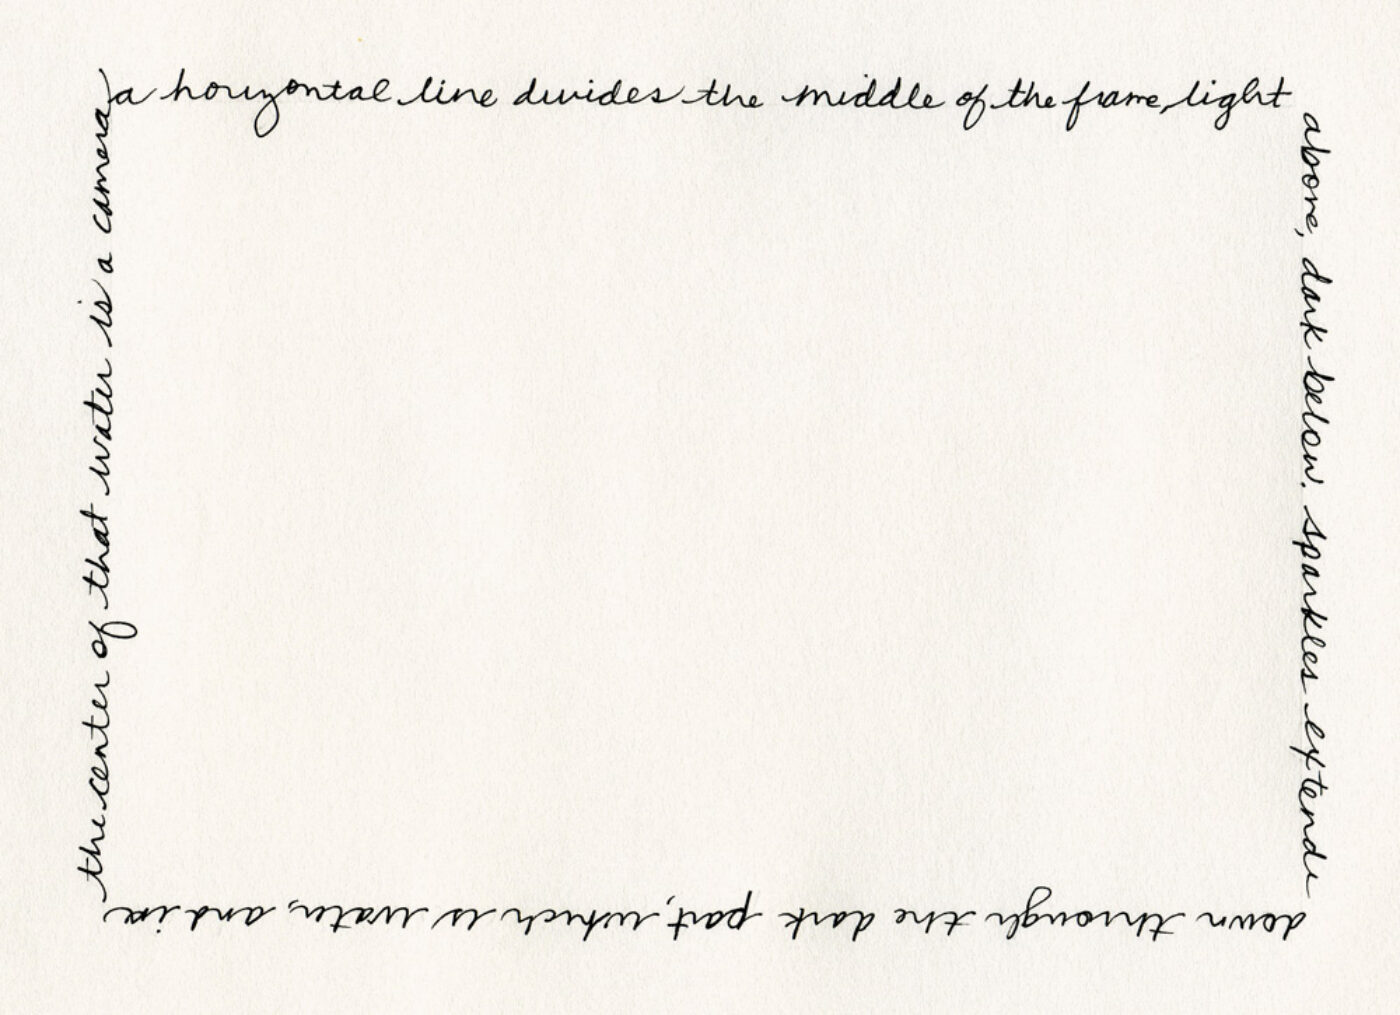 a horizontal line divides the middle of the frame, light
above, dark below. sparkles extende
down through the dark part, which is water, and in
the center of that water is a camera